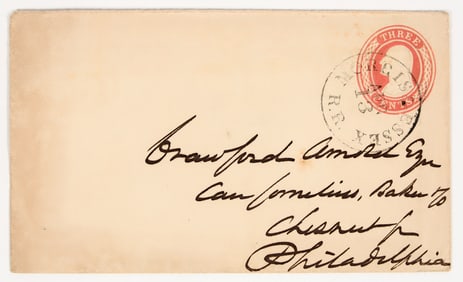 THREE
CENTS
MORRIS & ESSEX R.R.
13
Crawford Arnold Esq
Care Cornelius, Baker & Co
Chesnut St
Philadelphia